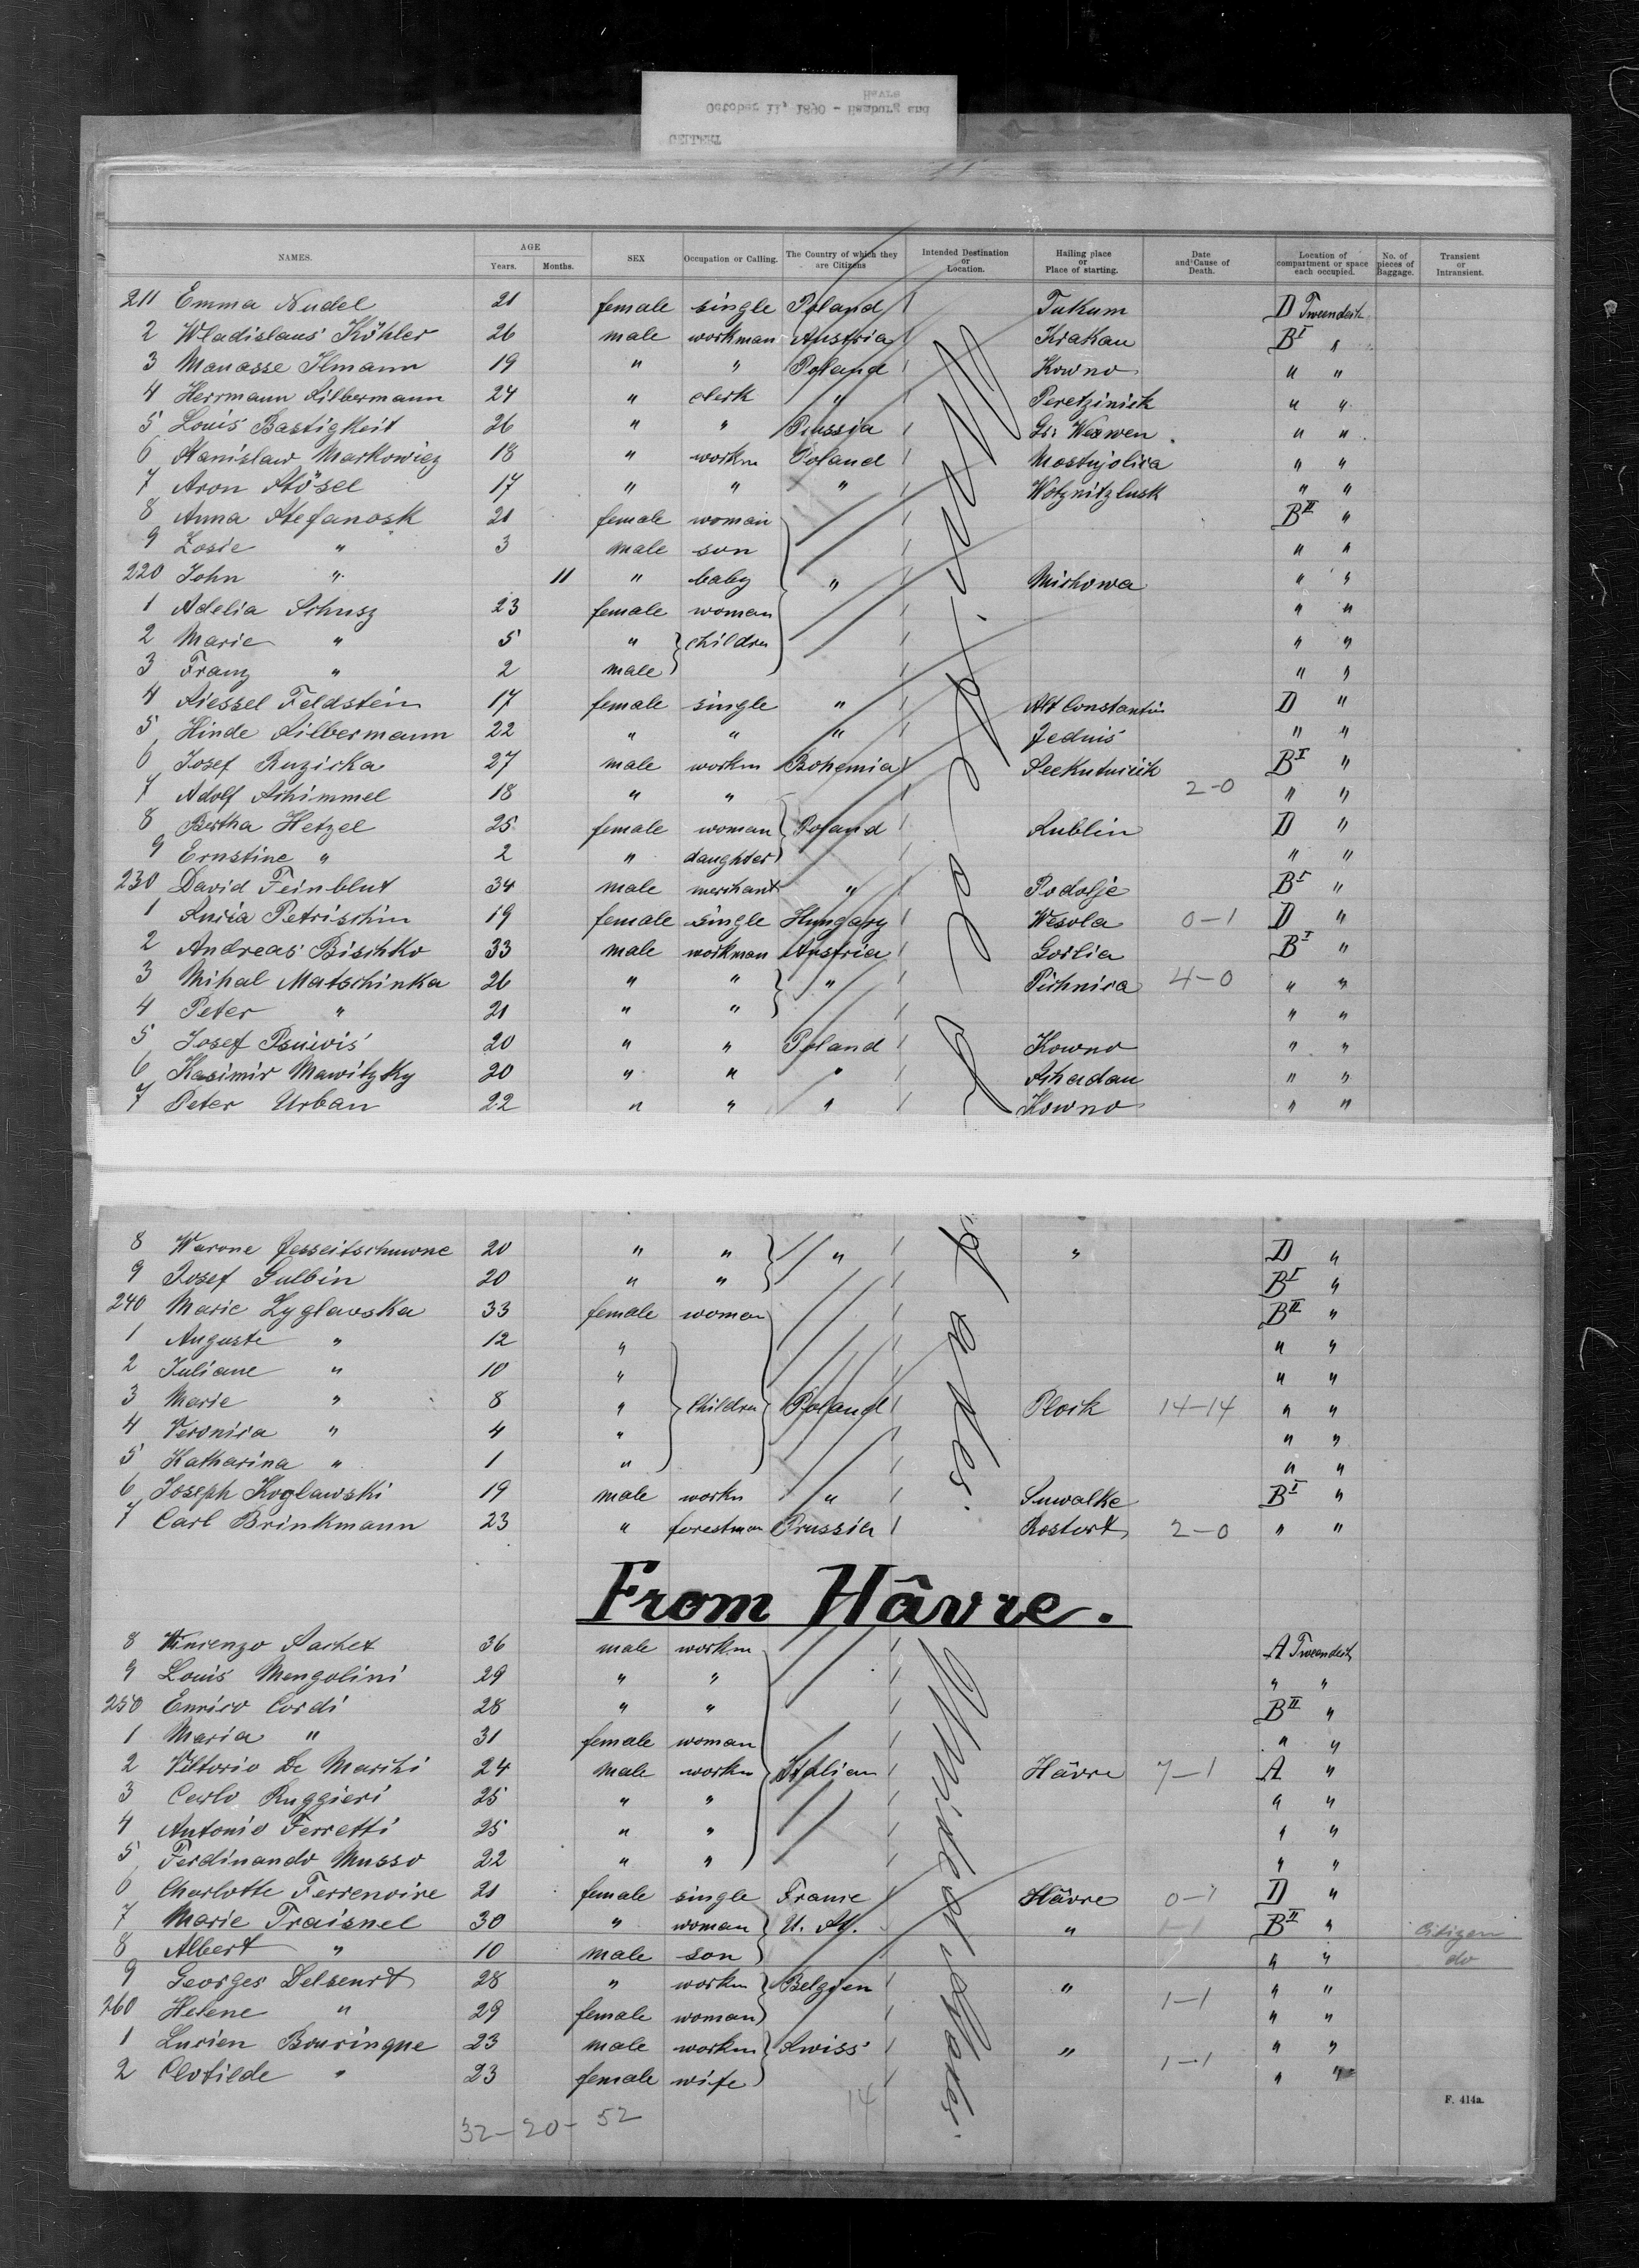 Havre
October 11, 1890 - Hamburg and
GELLERT
NAMES. AGE Years. Months. SEX Occupation or Calling. The Country of which they are Citizens Intended Destination or Location. Hailing place or Place of starting. Date and Cause of Death. Location of compartment or space each occupied. No. of pieces of Baggage. Transient or Intransient.
211 Emma Nudel 21 female single Poland Tukum D Tweendeck
2 Wladislaus Köhler 26 male workman Austria Krakau B I "
3 Manasse Ilmann 19 " " Poland Kowno " "
4 Herrmann Silbermann 24 " clerk " " "
5 Louis Bastigkeit 26 " " Prussia Gr. Wexwen " "
6 Stanislaw Markowicz 18 " workm Poland " "
7 Aron Stösel 17 " " " " "
8 Anna Stefanosk 21 female woman B II "
9 Zosie " 3 male son " "
220 John " 11 " baby " Mishowa " "
1 Adelia Schusz 23 female woman " "
2 Marie " 5 " children " "
3 Franz " 2 male " "
4 Siessel Feldstein 17 female single " Alt Constantin D "
5 Hinde Silbermann 22 " " " Jednis " "
6 Josef Ruzicka 27 male workm Bohemia B I "
7 Adolf Schimmel 18 " " 2-0 " "
8 Bertha Hetzel 25 female woman Poland Lublin D "
9 Ernstine " 2 " daughter " "
230 David Feinblut 34 male merchant " Podolje B I "
1 Lucia Petrischin 19 female single Hungary Wesola 0-1 D "
2 Andreas Bischko 33 male workman Austria Gorlia B I "
3 Mihal Matschinka 26 " " " Pichnica 4-0 " "
4 Peter " 21 " " " "
5 Josef 20 " " Poland Kowno " "
6 Kasimir Mawitzky 20 " " " Schadau " "
7 Peter Urban 22 " " " Kowno " "
8 Warone Jesseitschuwne 20 " " " " D "
9 Josef Gulbin 20 " " B I "
240 Marie Zyglawska 33 female woman B II "
1 Auguste " 12 " " "
2 Juliane " 10 " " "
3 Marie " 8 " children Poland Plock 14-14 " "
4 Veronica " 4 " " "
5 Katharina " 1 " " "
6 Joseph Koglawski 19 male workm " Suwalke B I "
7 Carl Brinkmann 23 " forestman Prussia Rostock 2-0 " "
From Hâvre.
8 Vincenzo Sachet 36 male workm A Tweendeck
9 Louis Mengolini 29 " " " "
250 Enrico Cordi 28 " " B II "
1 Maria " 31 female woman " "
2 Vittorio De Marchi 24 male workm Italian Hâvre 7-1 A "
3 Carlo Ruggieri 25 " " " "
4 Antonio Ferretti 25 " " " "
5 Ferdinando Musso 22 " " " "
6 Charlotte Ferrenoire 21 female single France Hâvre 0-1 D "
7 Marie Traisnel 30 " woman U. St. " 1-1 B II " Citizen
8 Albert " 10 male son " " do
9 Georges Delseurt 28 " workm Belgien " 1-1 " "
260 Helene " 29 female woman " "
1 Lucien Bourinque 23 male workm Swiss " 1-1 " "
2 Clotilde " 23 female wife " "
United States.
United States.
32-20-52 14
F. 414a.